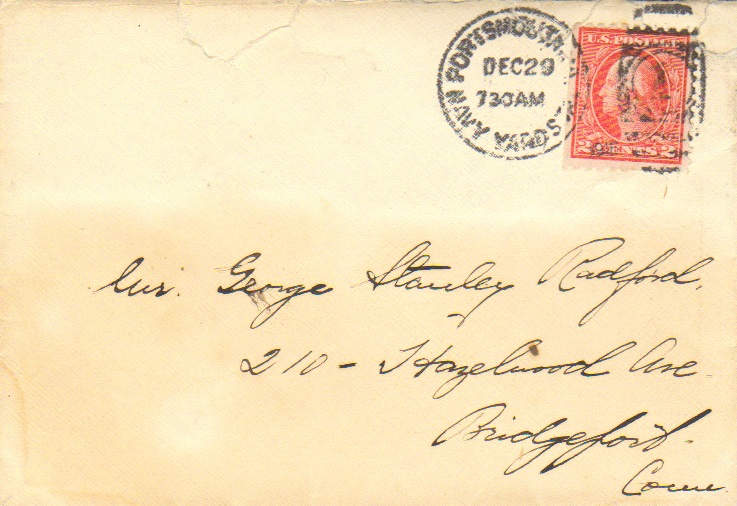 PORTSMOUTH
DEC 29
7 30 AM
NAVY YARD
U.S. POSTAGE
2 CENTS 2
Mr. George Stanley Radford.
210 - Hazelwood Ave
Bridgeport.
Conn.